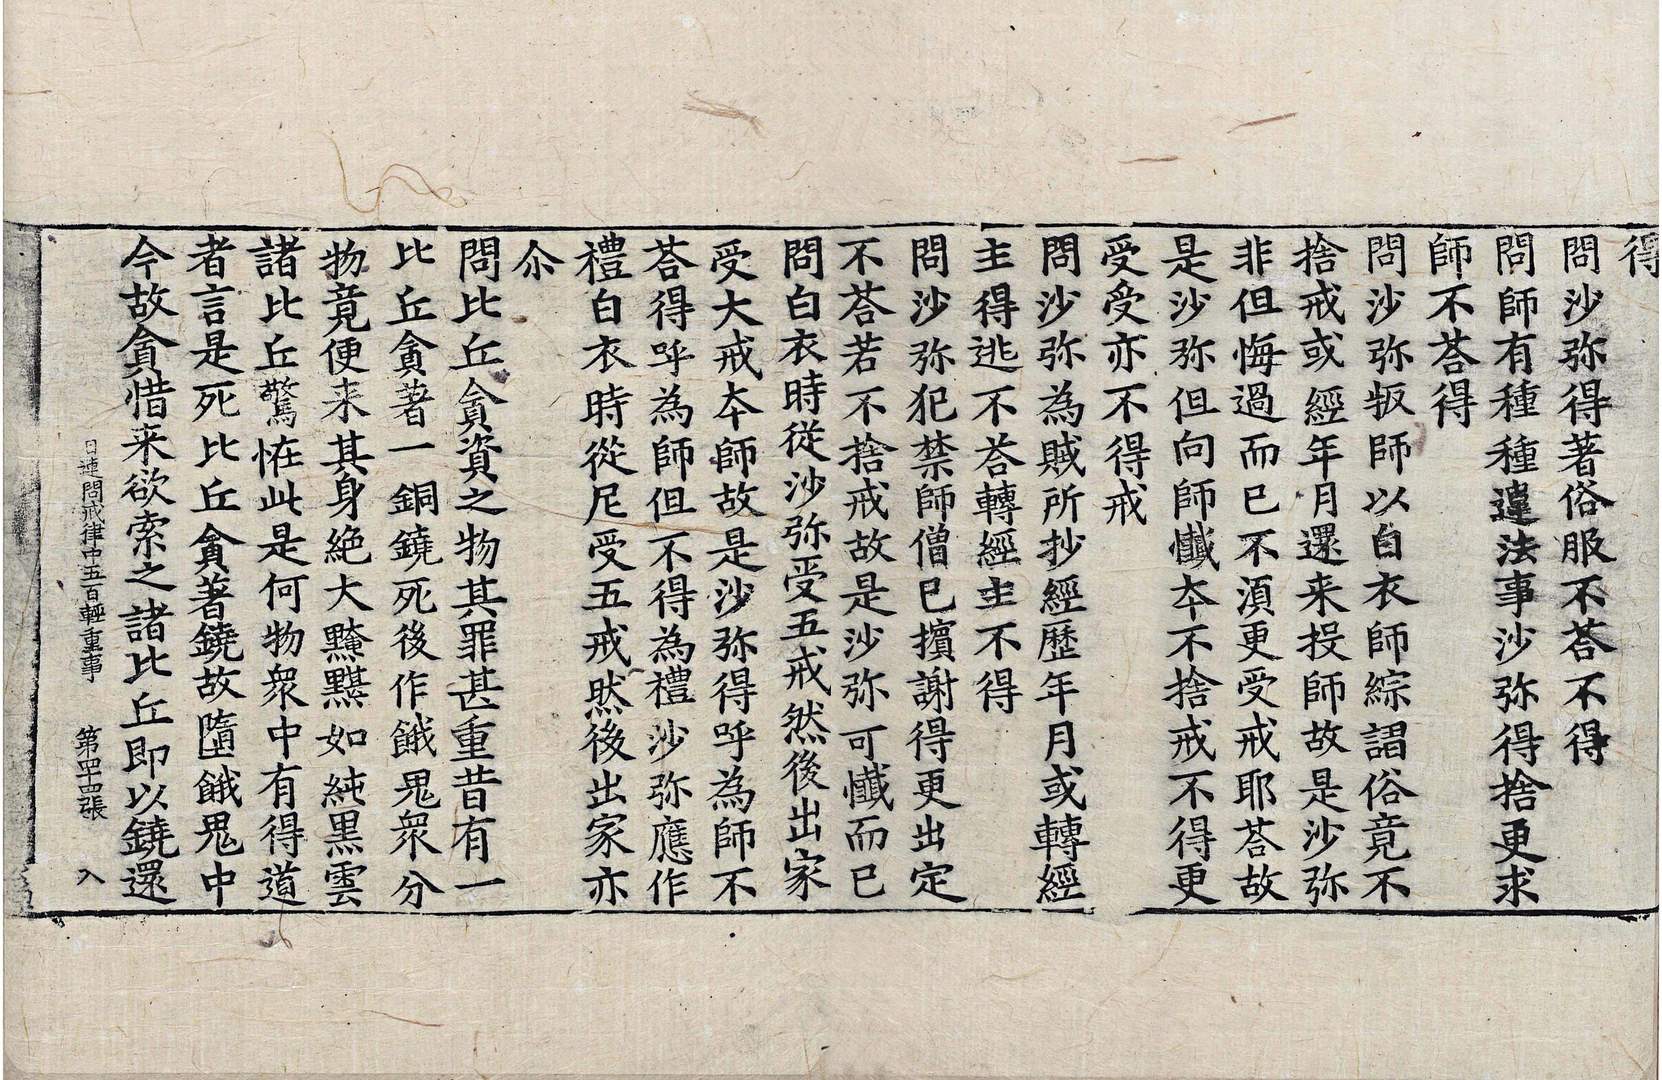 得
問沙弥得著俗服不荅不得
問師有種種違法事沙弥得捨更求
師不荅得
問沙弥叛師以白衣師綜謂俗竟不
捨戒或經年月還来投師故是沙弥
非但悔過而已不湏更受戒耶荅故
是沙弥但向師懺夲不捨戒不得更
受受亦不得戒
問沙弥為賊所抄經歷年月或轉經
主得逃不荅轉經主不得
問沙弥犯禁師僧已擯謝得更出定
不荅若不捨戒故是沙弥可懺而已
問白衣時従沙弥受五戒然後出家
受大戒夲師故是沙弥得呼為師不
荅得呼為師但不得為禮沙弥應作
禮白衣時從尼受五戒然後出家亦
尒
問比丘貪資之物其罪甚重昔有一
比丘貪著一銅鐃死後作餓鬼衆分
物竟便来其身絶大黤黮如純黒雲
諸比丘驚恠此是何物衆中有得道
者言是死比丘貪著鐃故墮餓鬼中
今故貪惜来欲索之諸比丘即以鐃還
目連問戒律中五百輕重事 第四十四張 入